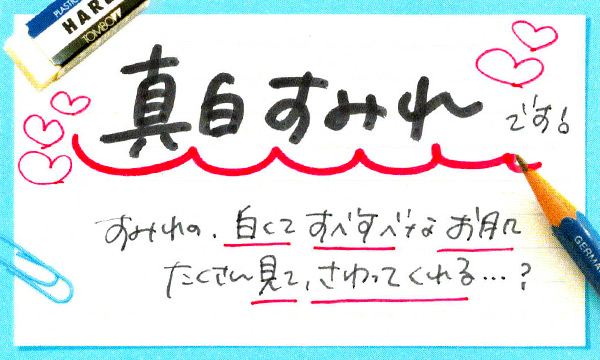 PLASTIC
TOMBOW
真白すみれ です!
すみれの、白くて すべすべな お肌
たくさん見て、さわってくれる…?
GERMAN